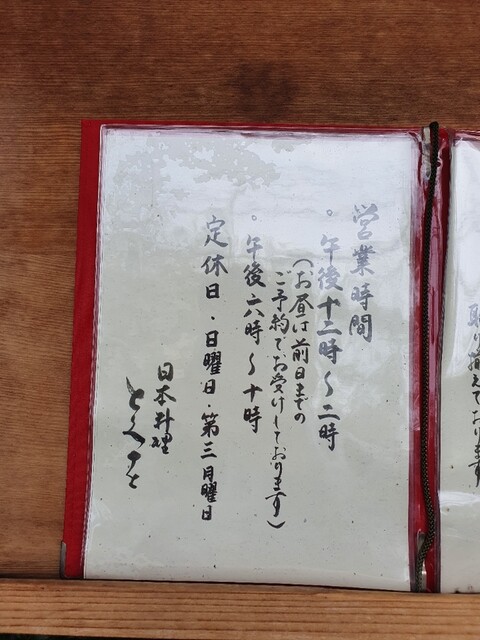 営業時間
。午後十二時〜二時
(お昼は前日までの
ご予約でお受けしております)
。午後六時〜十時
定休日・日曜日・第三月曜日
日本料理
取り揃えております